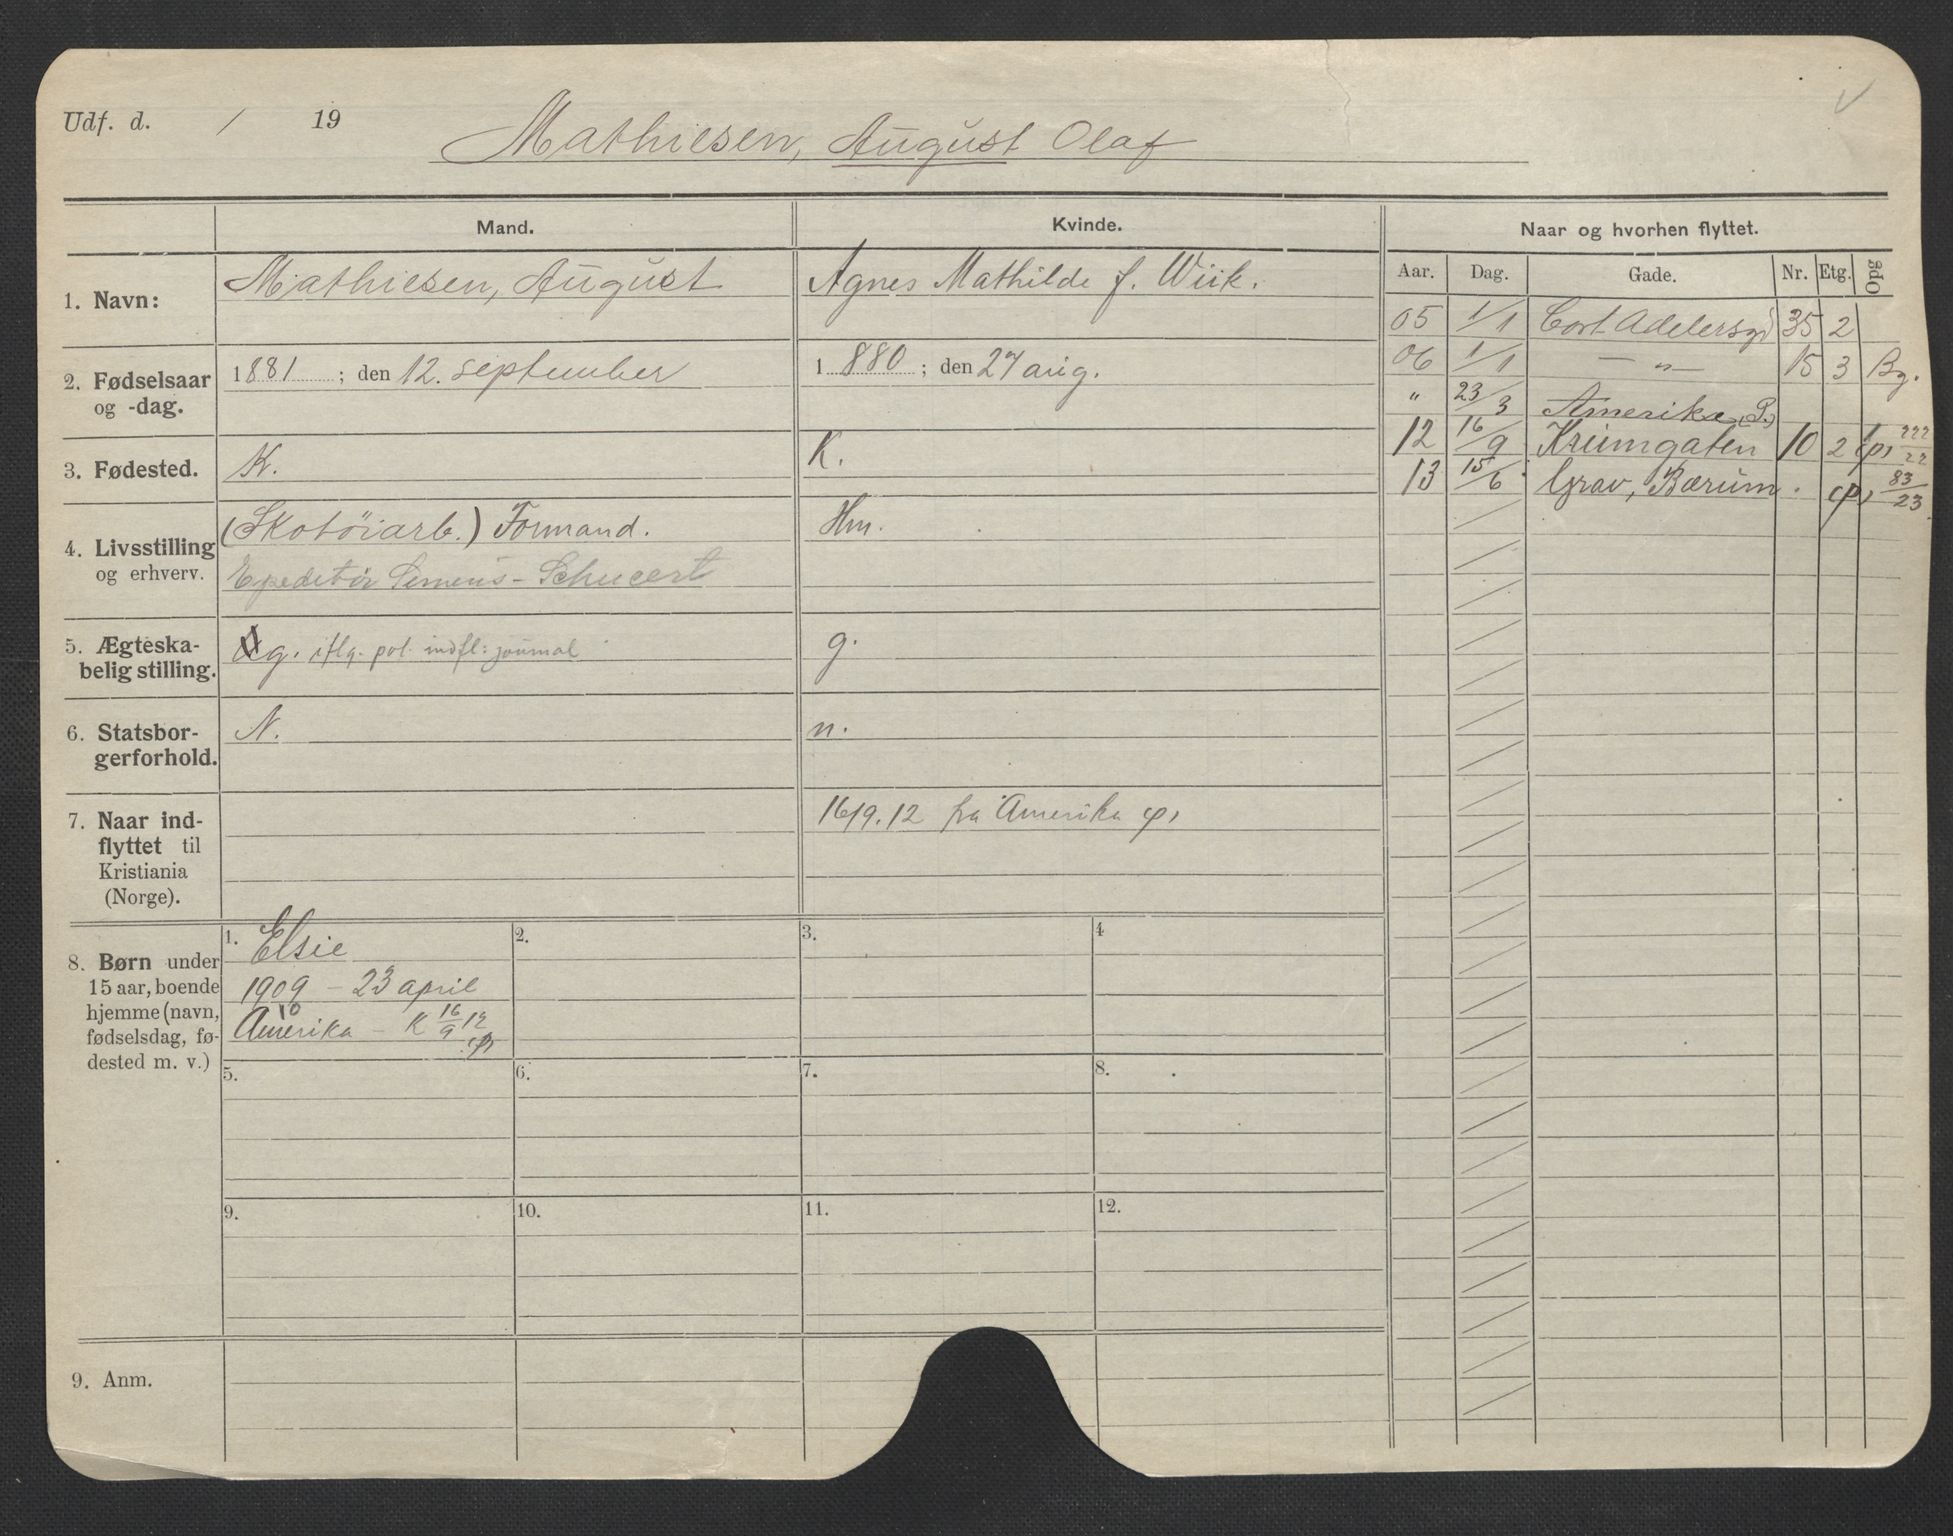 Udf. d. / 19
Mathiesen, August Olaf
Mand.
Kvinde.
Naar og hvorhen flyttet.
Aar. Dag. Gade. Nr. Etg. Opg
1. Navn:
Mathiesen, August
Agnes Mathilde f. Wiik.
05 1/1 Cort Adelersg 35 2
06 1/1 — " — 15 3 Bg.
" 23/3 Amerika (P.)
12 16/9 Krumgaten 10 2 222/22
13 15/6 Grav, Bærum. 83/23
2. Fødselsaar
og -dag.
1881 ; den 12. september
1880 ; den 27 aug.
3. Fødested.
K.
K.
4. Livsstilling
og erhverv.
(Skotöiarb.) Formand.
Expeditör Simens-Schucert
Hm.
5. Ægteska-
belig stilling.
g. iflg. pol. indfl: journal
g.
6. Statsbor-
gerforhold.
N.
n.
7. Naar ind-
flyttet til
Kristiania
(Norge).
16/9.12 fra Amerika
8. Børn under
15 aar, boende
hjemme (navn,
fødselsdag, fø-
dested m. v.)
1. Elsie
1909 – 23 april
10
Amerika – K 16/9 12
2.
3.
4
5.
6.
7.
8.
9.
10.
11.
12.
9. Anm.